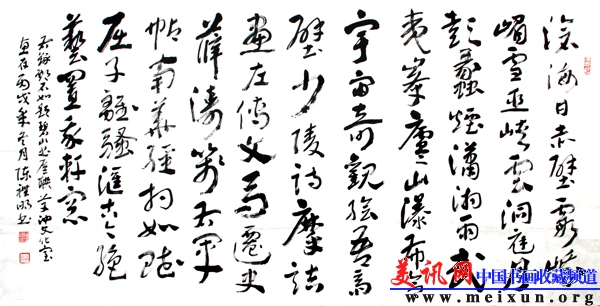 滄海日赤壁霞峨
嵋雪巫峽雲洞庭月
彭蠡煙瀟湘雨武
夷峯廬山瀑布合
宇宙奇觀繪吾齋
壁少陵詩摩詰
畫左傳文馬遷史
薛濤箋右軍
帖南華經相如賦
屈子離騷匯古今絕
藝置我軒窗
題碧山書屋聯 文化室
丙戌年冬月陳 書
美讯网 中国书画收藏频道
www.meixun.org